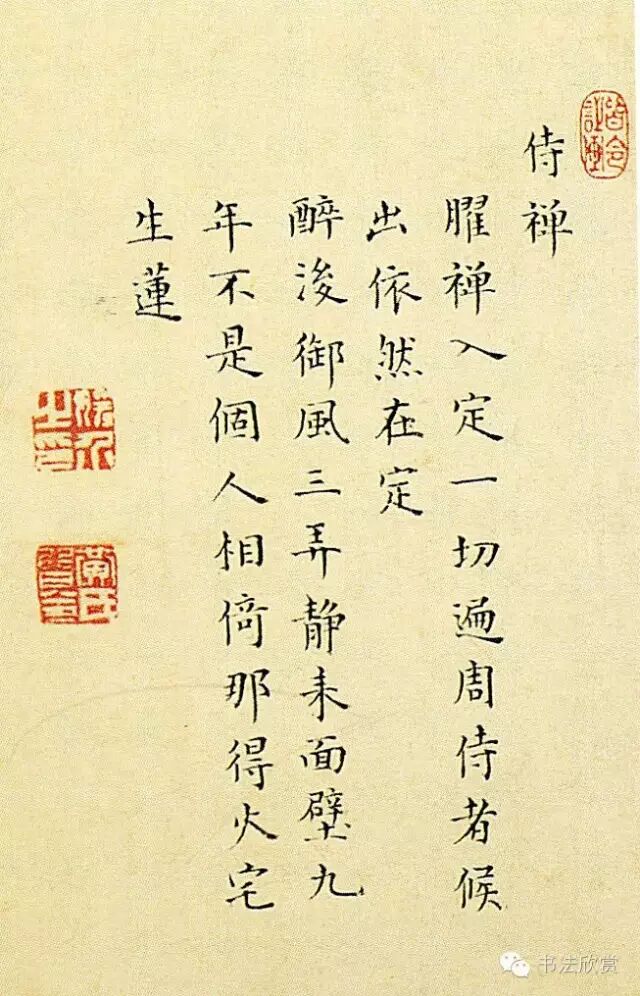 侍禅
臞禅入定一切遍周侍者候
出依然在定
醉後御風三弄静来面壁九
年不是個人相倚那得火宅
生蓮
书法欣赏